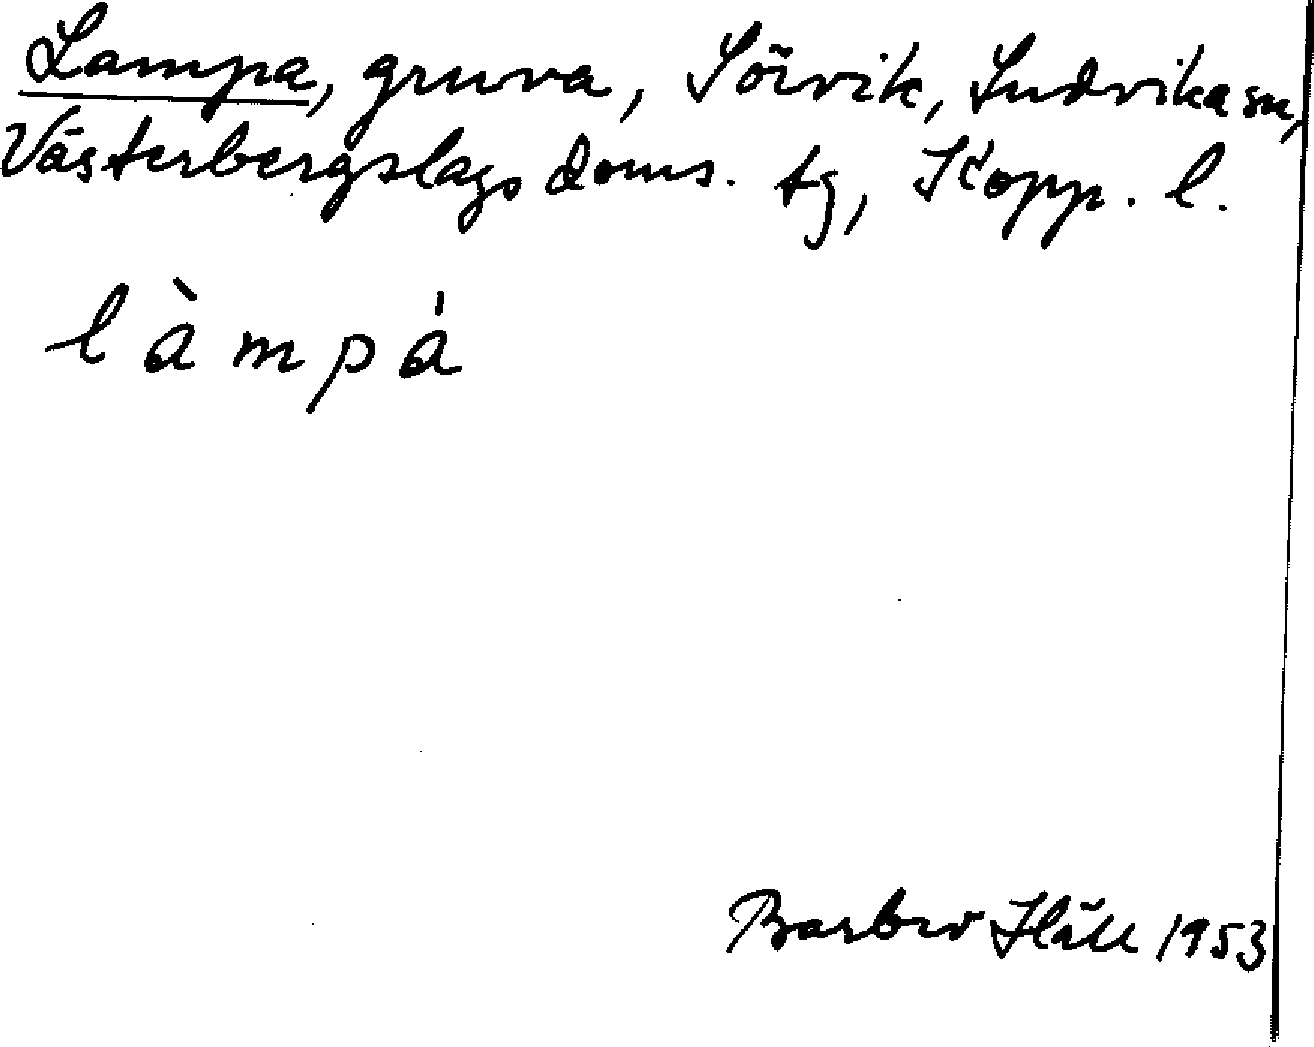 Lampa, gruva, Sörvik, Ludvika sn,
Västerbergslags doms. tg, Kopp. l.
làmpá
Barbro Häll 1953